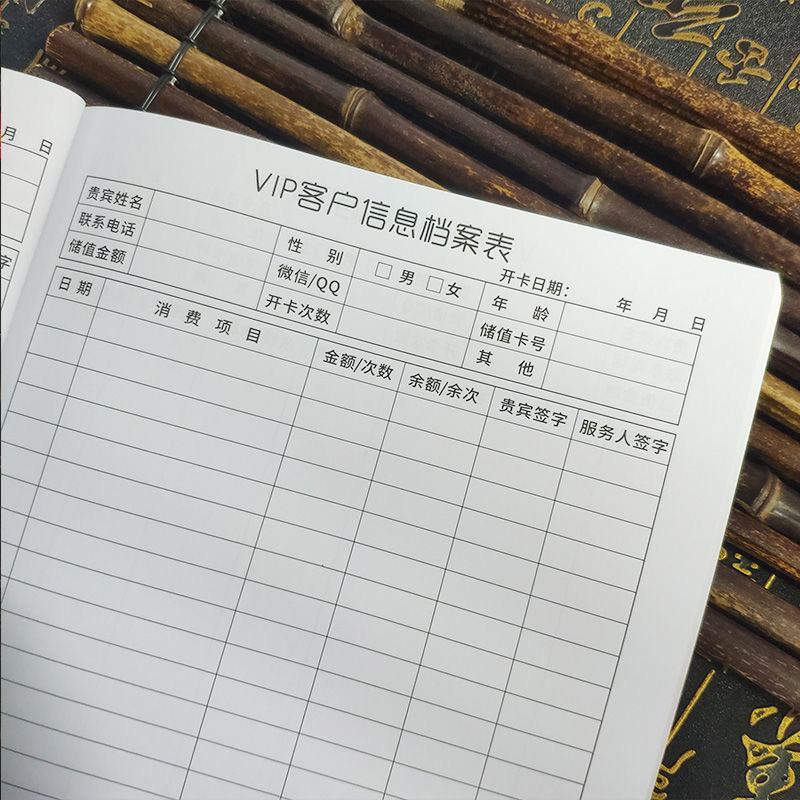 月 日
字
VIP客户信息档案表
开卡日期: 年 月 日
贵宾姓名 性 别 □男 □女 年 龄
联系电话 微信/QQ 储值卡号
储值金额 开卡次数 其 他
日 期 消 费 项 目 金额/次数 余额/余次 贵宾签字 服务人签字